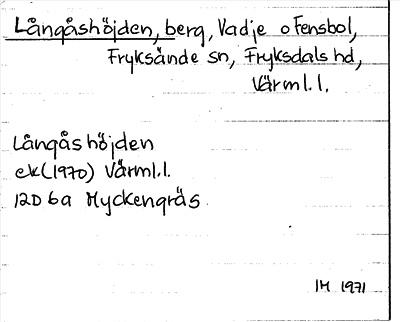 Långåshöjden, berg, Vadje o Fensbol,
Fryksände sn, Fryksdals hd,
Värml. l.
Långåshöjden
ek (1970) Värml. l.
12D 6a Myckengräs
IM 1971